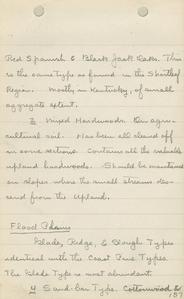 Red Spanish & Black Jack Oaks. This
is the same type as found in the Shortleaf
Region. Mostly in Kentucky, of small
aggregate extent.
3 Mixed Hardwoods. On agri-
cultural soil. Has been all cleared off
in some sections. Contains all the valuable
upland hardwoods. Should be maintained
on slopes where the small streams des-
cend from the Upland.
Flood Plains
Glade, Ridge, & Slough Types
identical with the Coast Pine Types.
The Glade Type is most abundant.
4 Sand-bar Type. Cottonwood &
157